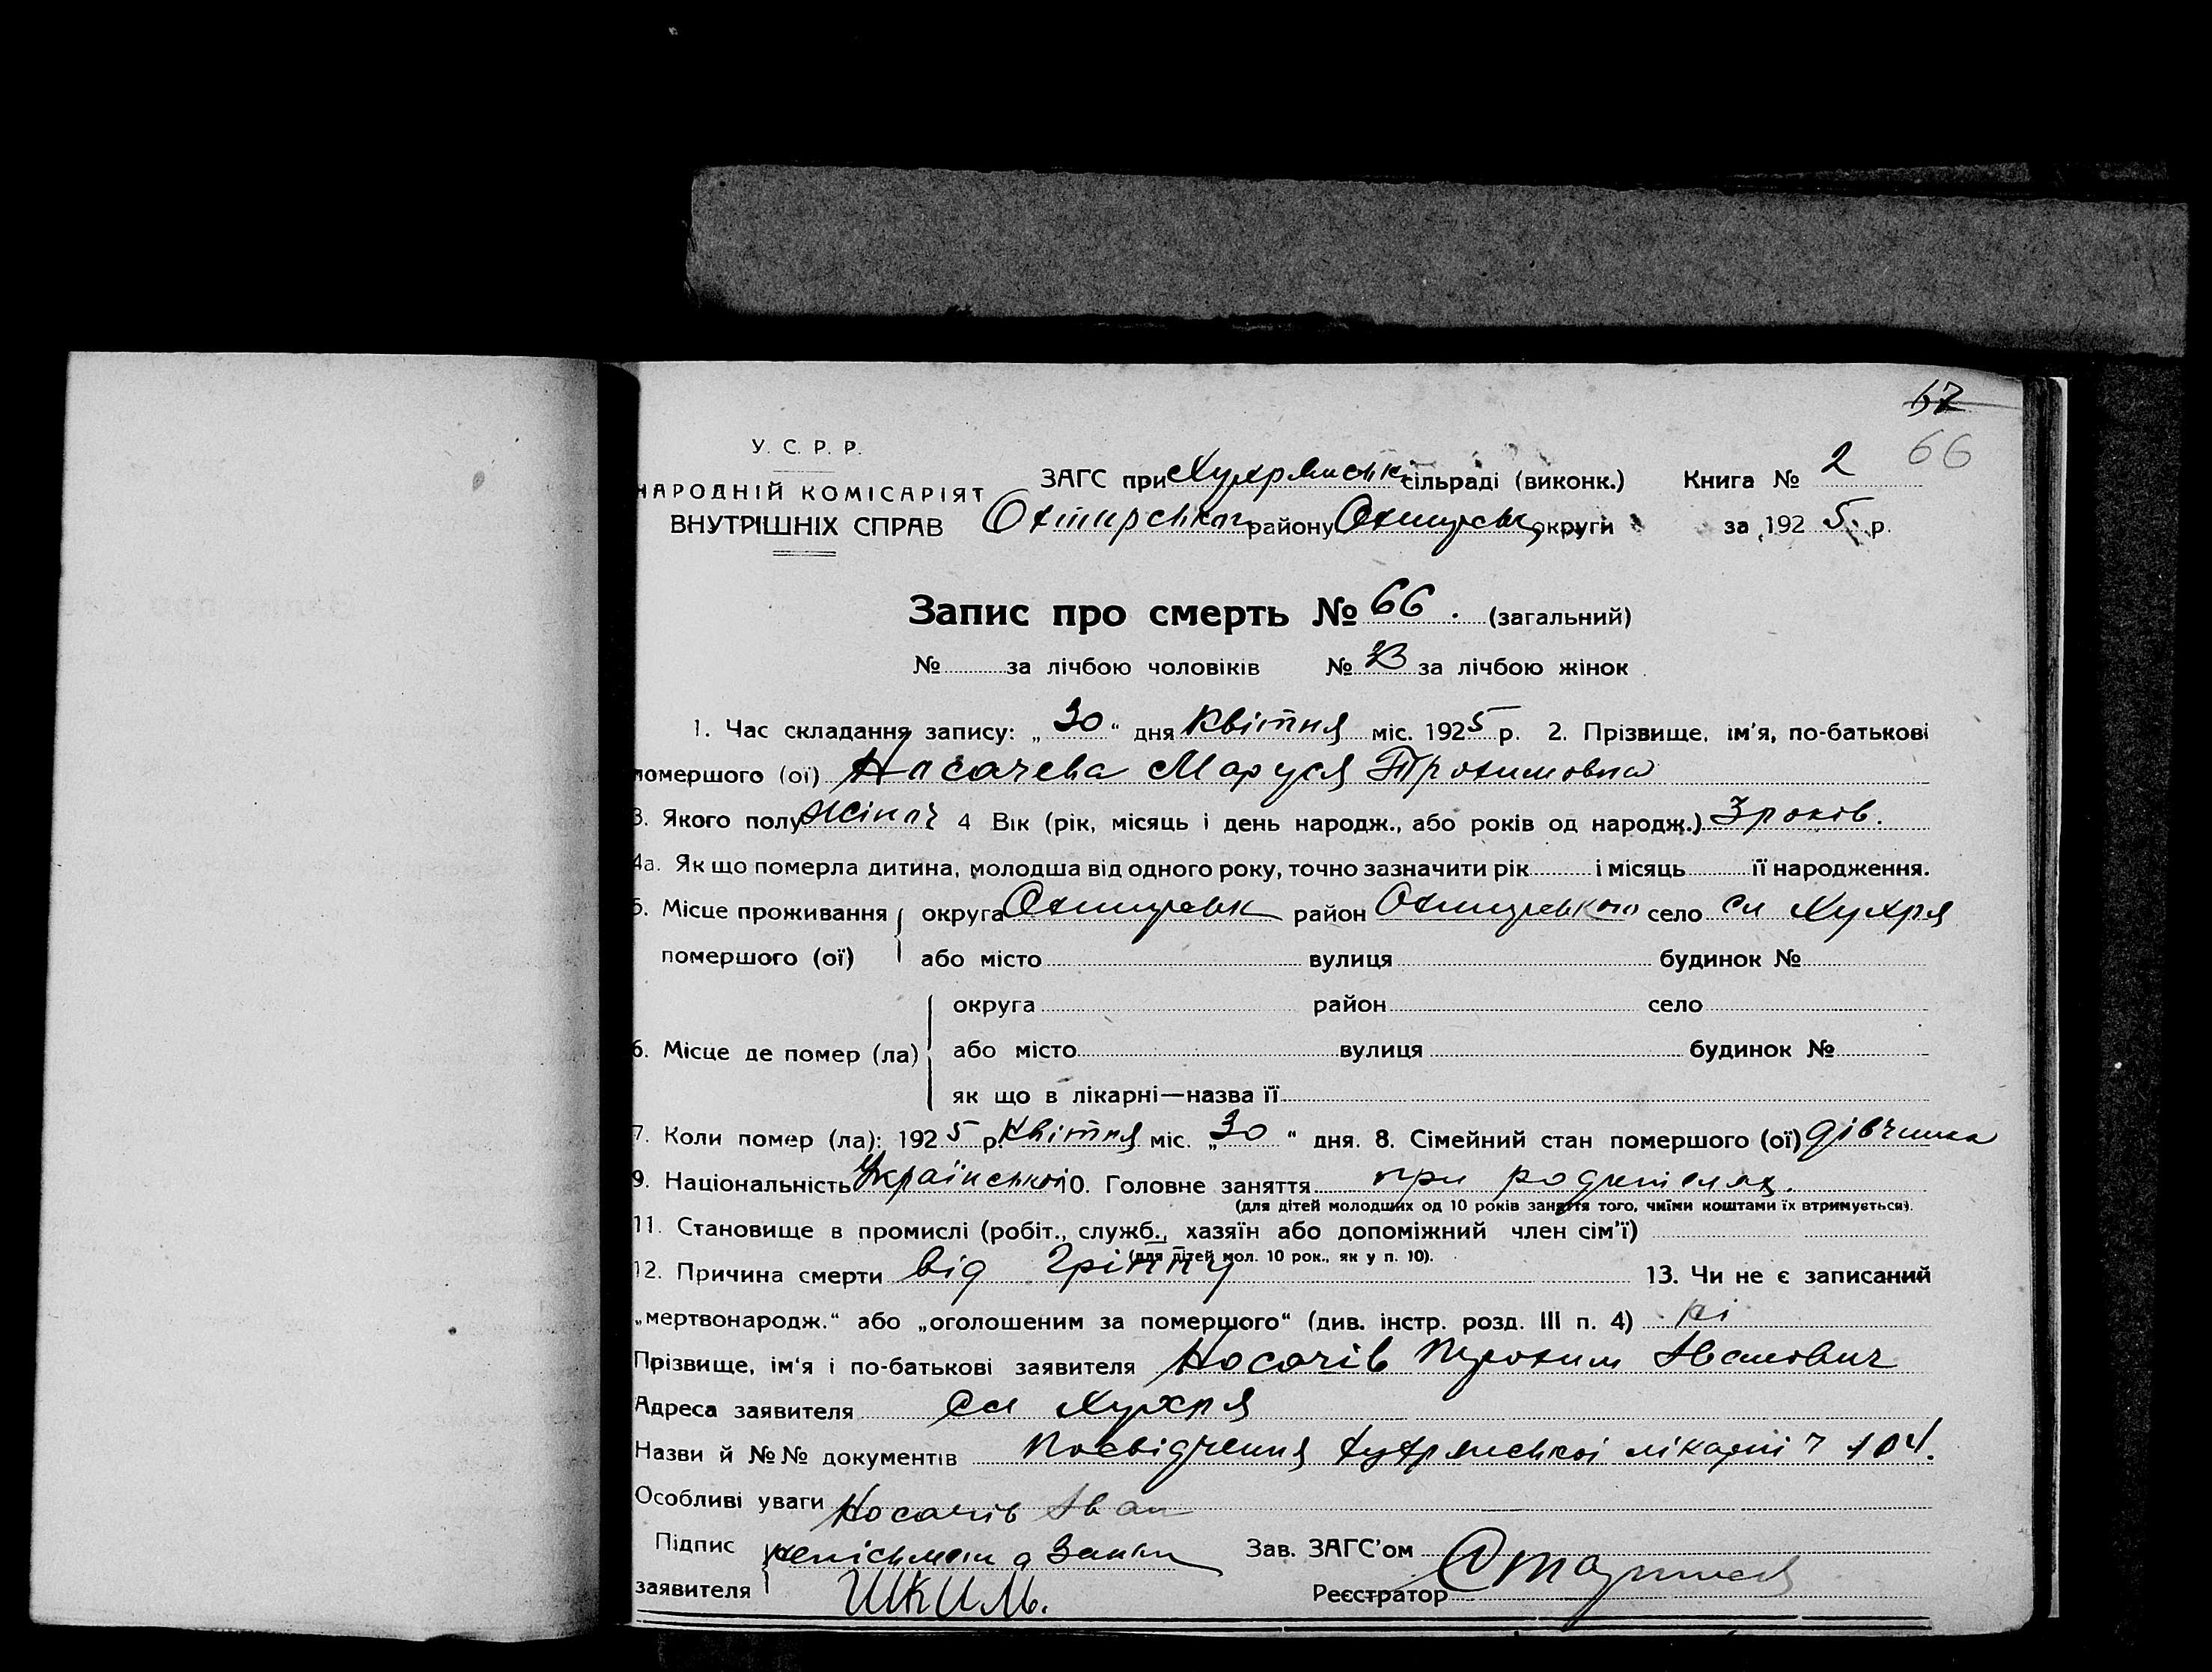 67
66
У. С. Р. Р.
НАРОДНІЙ КОМІСАРІЯТ
ВНУТРІШНІХ СПРАВ
ЗАГС при Хухрянськ. сільраді (виконк.) Книга № 2
Охтирськ району Охтирськ округи за 1925 р.
Запис про смерть № 66. (загальний)
№ за лічбою чоловіків № за лічбою жінок
1. Час складання запису: „30“ дня Квітня міс. 1925 р. 2. Прізвище, ім'я, по-батькові
помершого (ої) Носачева Маруся Трохимовна
3. Якого полу жіноч 4 Вік (рік, місяць і день народж., або років од народж.) 3 років.
4а. Як що померла дитина, молодша від одного року, точно зазначити рік і місяць її народження.
5. Місце проживання округа Охтирськ район Охтирськ село сл Хухря
помершого (ої) або місто вулиця будинок №
округа район село
6. Місце де помер (ла) або місто вулиця будинок №
як що в лікарні—назва її
7. Коли помер (ла): 1925 р. Квітня міс. „30“ дня. 8. Сімейний стан помершого (ої) дівчина
9. Національність Української 10. Головне заняття при родителях.
(для дітей молодших од 10 років заняття того, чиїми коштами їх втримується).
11. Становище в промислі (робіт., служб., хазяїн або допоміжний член сім'ї)
(для дітей мол. 10 рок., як у п. 10).
12. Причина смерти від Гріппу 13. Чи не є записаний
„мертвонародж.“ або „оголошеним за помершого“ (див. інстр. розд. III п. 4) ні
Прізвище, ім'я і по-батькові заявителя Носачів Трохим Івanович
Адреса заявителя сл Хухря
Назви й №№ документів Посвідчення Хухрянської лікарні 104.
Особливі уваги Носачів Іван
Підпис неписьмен а за нього
заявителя
Зав. ЗАГС'ом
Реєстратор